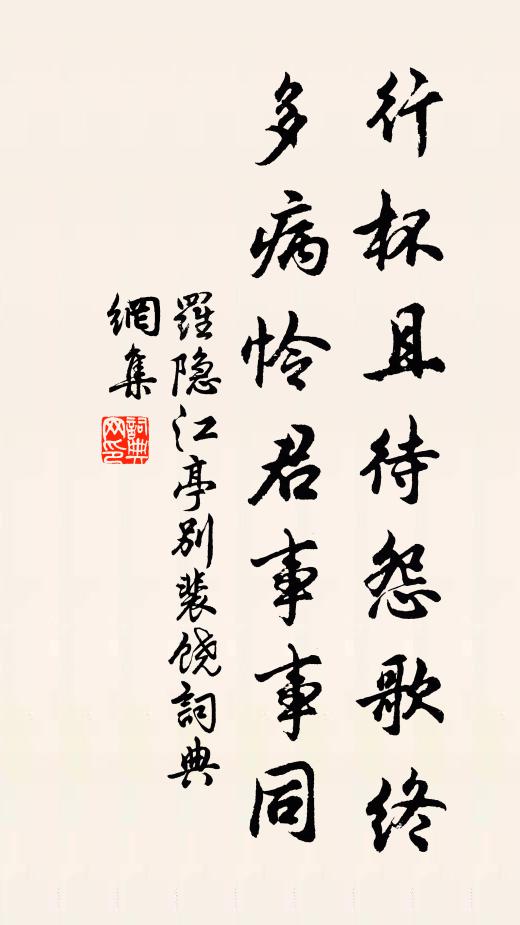 行杯且待怨歌終
多病怜君事事同
羅隐江亭别裴饶詞典
網集
詞典網印